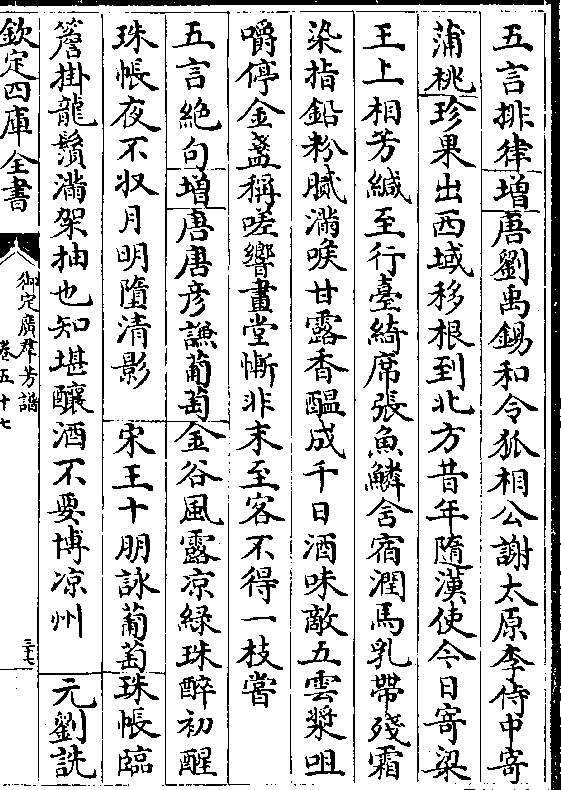 五言排律增唐劉禹錫和令狐相公謝太原李侍中寄
蒲桃珍果出西域移根到北方昔年隨漢使今日寄梁
王上相芳緘至行臺綺席張魚鱗含宿潤馬乳帶殘霜
染指鉛粉膩滿喉甘露香醞成千日酒味敵五雲漿咀
嚼停金盞稱嗟響畫堂慚非末至客不得一枝嘗
五言絕句增唐唐彥謙葡萄金谷風露凉綠珠醉初醒
珠帳夜不収月明墮清影　宋王十朋詠葡萄珠帳臨
簷掛龍鬚滿架抽也知堪釀酒不要博凉州　元劉詵
欽定四庫全書
御定廣羣芳譜
卷五十七
三十七